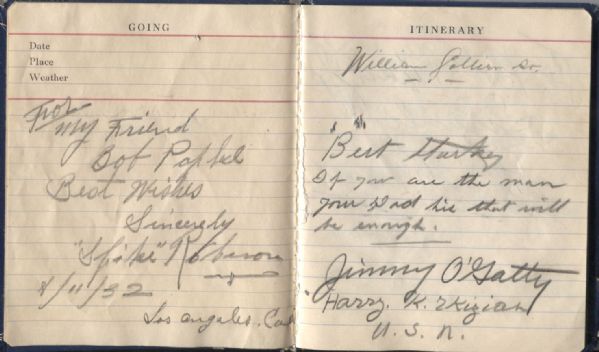 GOING
Date
Place
Weather
For
My Friend
Bob
Best Wishes
Sincerely
"Spike" Robinson
/11/32
Los Angeles. Cal
ITINERARY
William Sr.
"Bert
If you are the man
your Dad is that will
be enough.
Jimmy O'Gatty
Harry. K.
U. S. N.